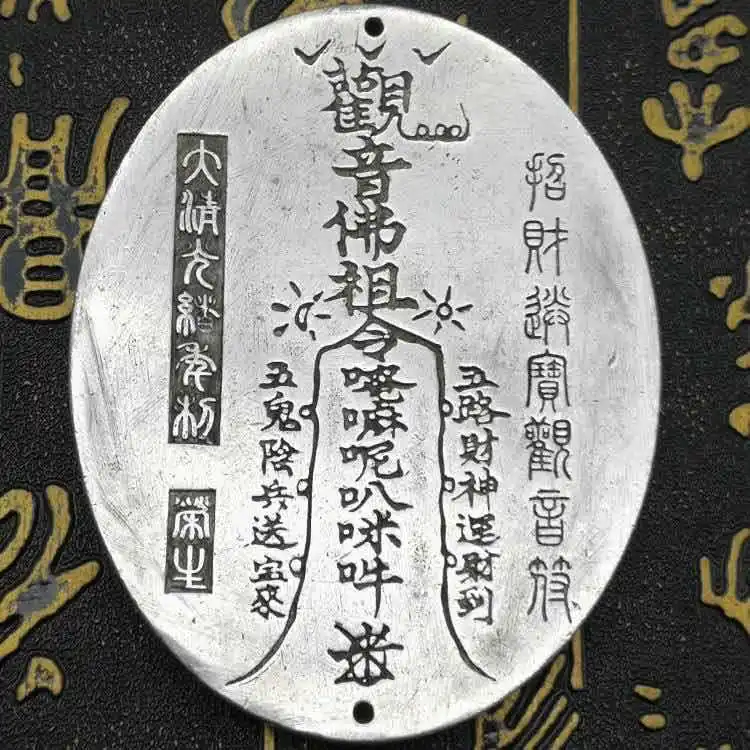 招財進寶觀音符
五路財神運財到
觀音佛祖令唵嘛呢叭咪吽
五鬼陰兵送宝來
大清光緒年制
榮生